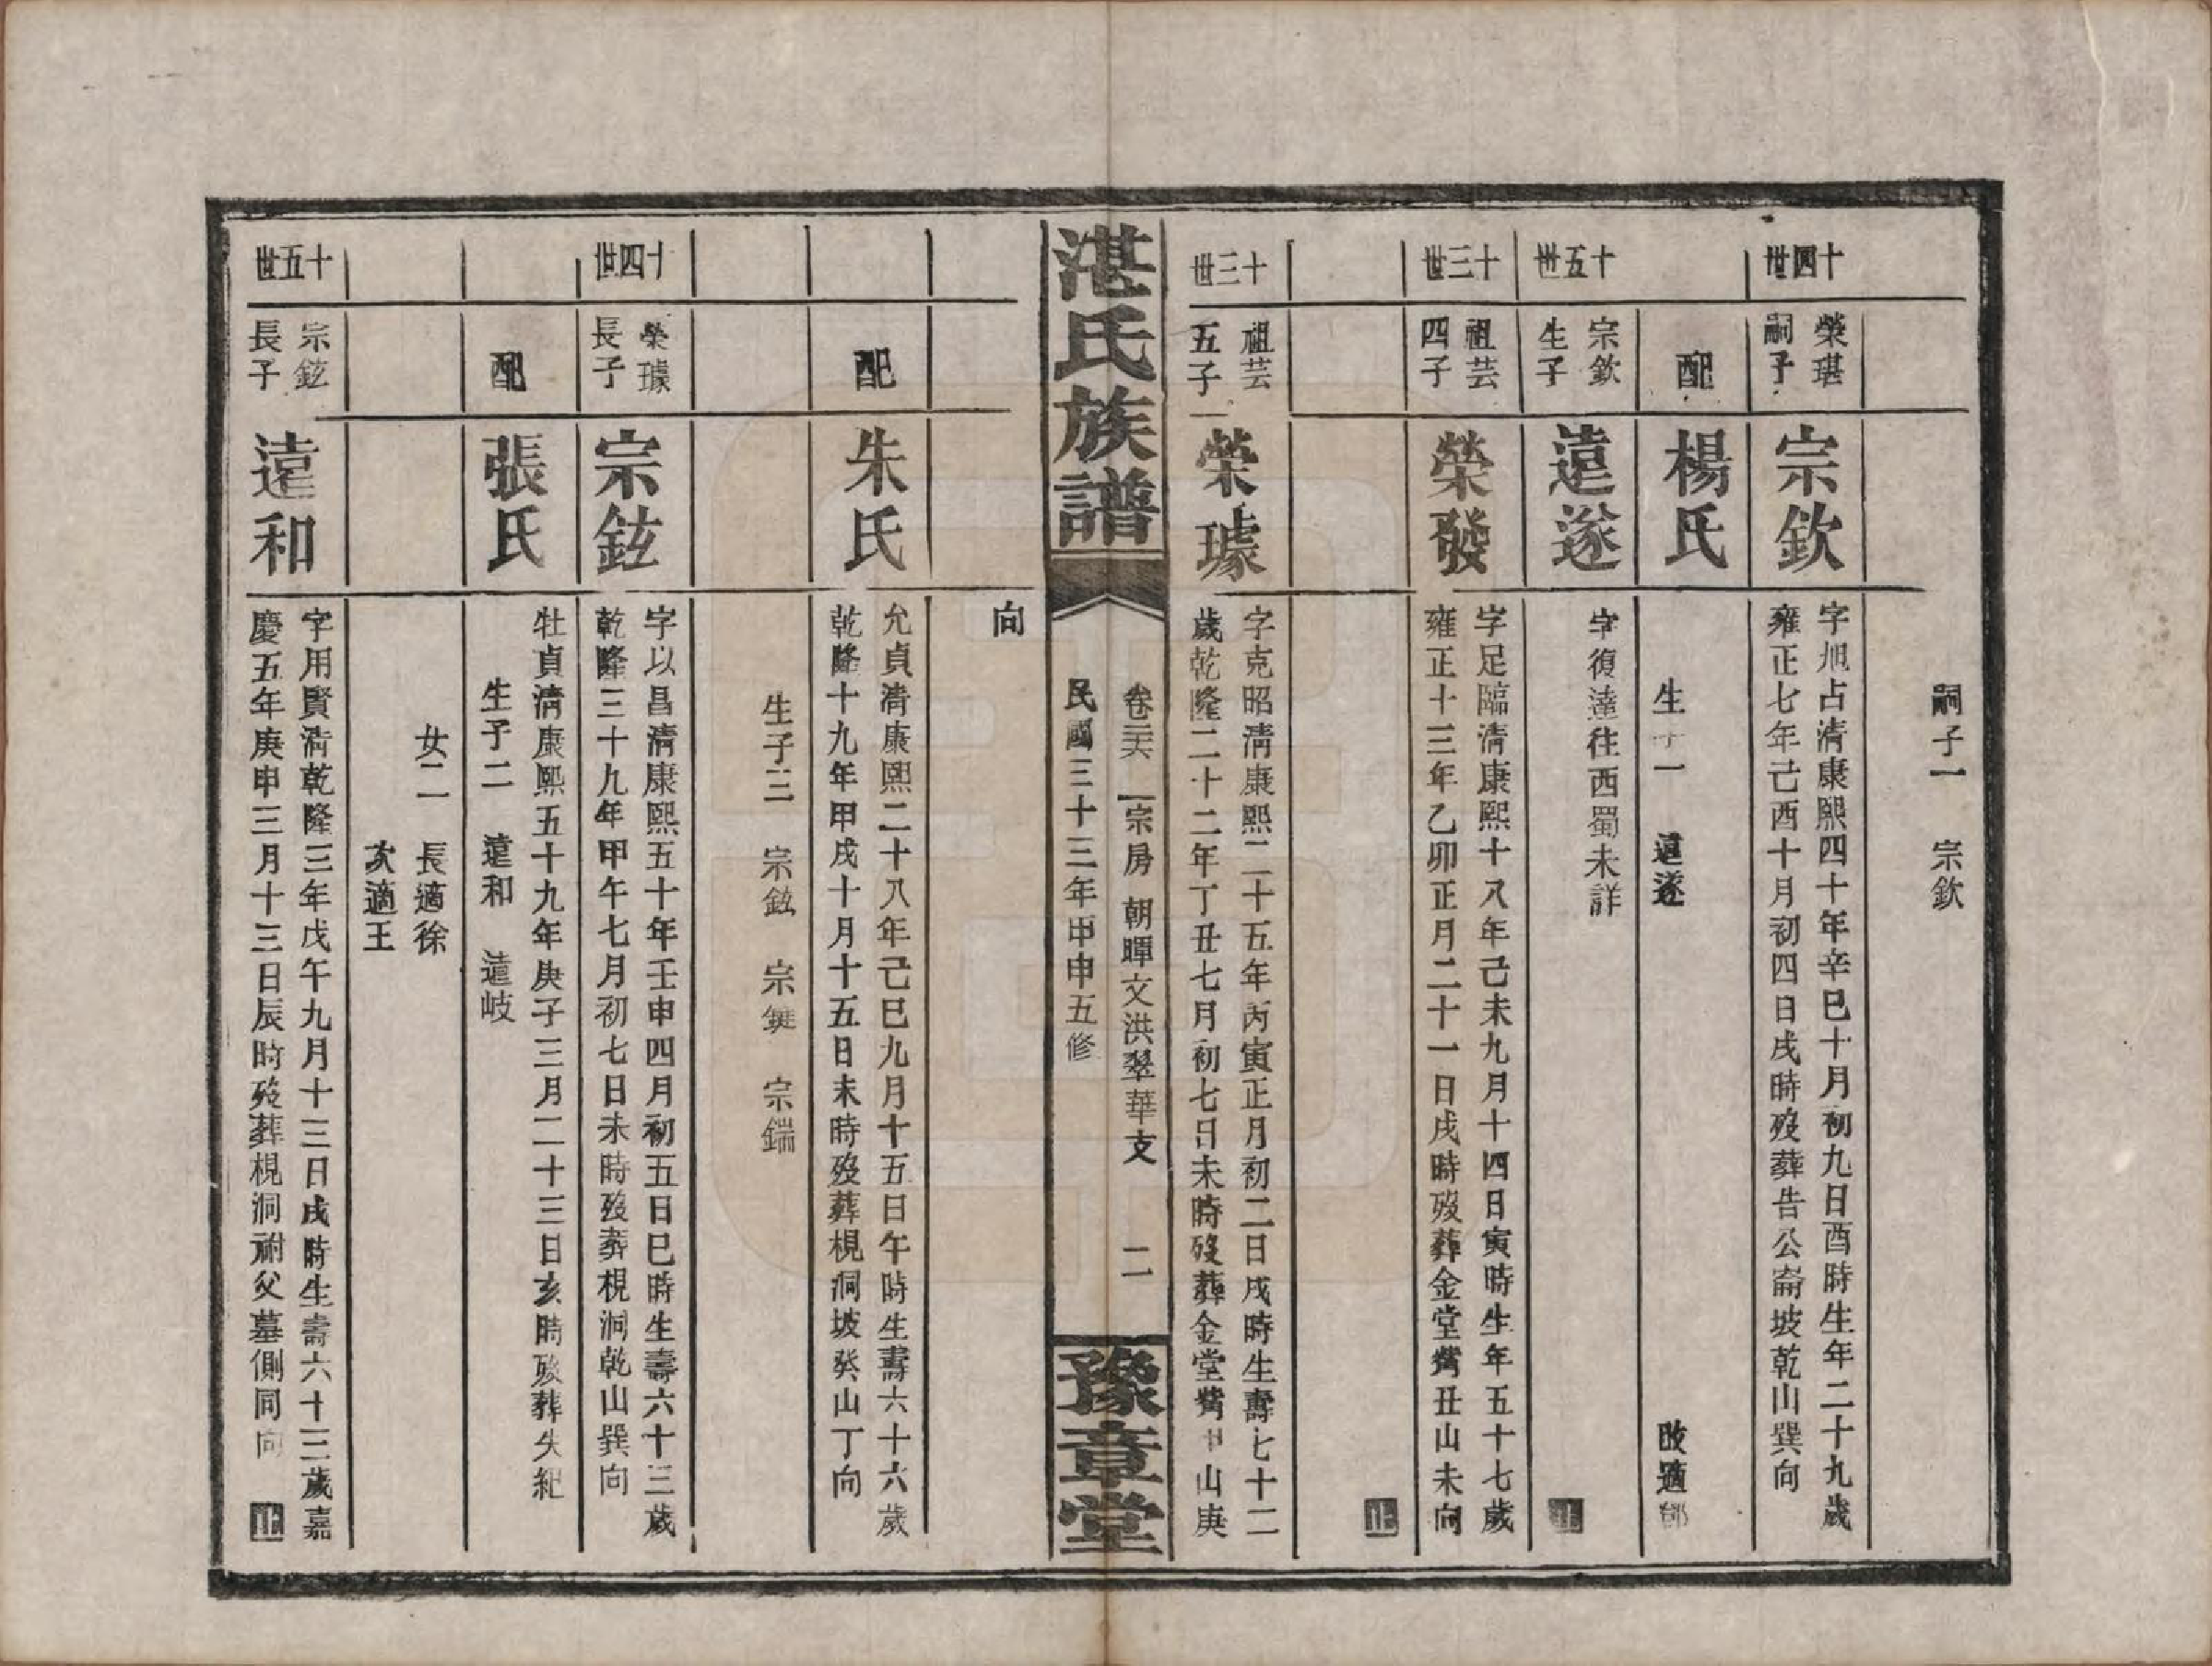 嗣子一　宗欽
十四世
榮琪
嗣子
宗欽
字旭占清康熙四十年辛巳十月初九日酉時生年二十九歲
雍正七年己酉十月初四日戌時歿葬告公崙坡乾山巽向
配
楊氏
生子一　遠遂　改適鄧
十五世
宗欽
生子
遠遂
字復達往西蜀未詳
止
十三世
祖芸
四子
榮發
字足臨清康熙十八年己未九月十四日寅時生年五十七歲
雍正十三年乙卯正月二十一日戌時歿葬金堂丑山未向
止
十三世
祖芸
五子
榮璩
字克昭清康熙二十五年丙寅正月初二日戌時生壽七十二
歲乾隆二十二年丁丑七月初七日未時歿葬金堂山庚
湛氏族譜
卷三六　宗房　朝暉文洪翠華支　二
民國三十三年甲申五修
豫章堂
向
配
朱氏
允貞清康熙二十八年己巳九月十五日午時生壽六十六歲
乾隆十九年甲戌十月十五日未時歿葬梘洞坡癸山丁向
生子三　宗鉉　宗　宗鍴
十四世
榮璩
長子
宗鉉
字以昌清康熙五十年壬申四月初五日巳時生壽六十三歲
乾隆三十九年甲午七月初七日未時歿葬梘洞乾山巽向
配
張氏
牡貞清康熙五十九年庚子三月二十三日亥時歿葬失紀
生子二　遠和　遠岐
女二　長適徐
次適王
十五世
宗鉉
長子
遠和
字用賢清乾隆三年戊午九月十三日戌時生壽六十三歲嘉
慶五年庚申三月十三日辰時歿葬梘洞祔父墓側同向
止